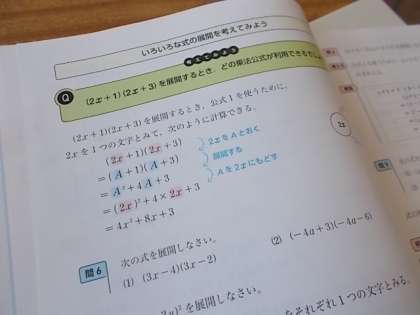 いろいろな式の展開を考えてみよう
考えてみよう
Q (2x+1)(2x+3)を展開するとき，どの乗法公式が利用できるでしょ
(2x+1)(2x+3)を展開するとき，公式1を使うために，
2xを1つの文字とみて，次のように計算できる。
(2x+1)(2x+3)
=(A+1)(A+3)
=A²+4A+3
=(2x)²+4×2x+3
=4x²+8x+3
2xをAとおく
展開する
Aを2xにもどす
問6 次の式を展開しなさい。
(1) (3x-4)(3x-2)
(2) (-4a+3)(-4a-6)
)²を展開しなさい。
をそれぞれ1つの文字とみる。
2x